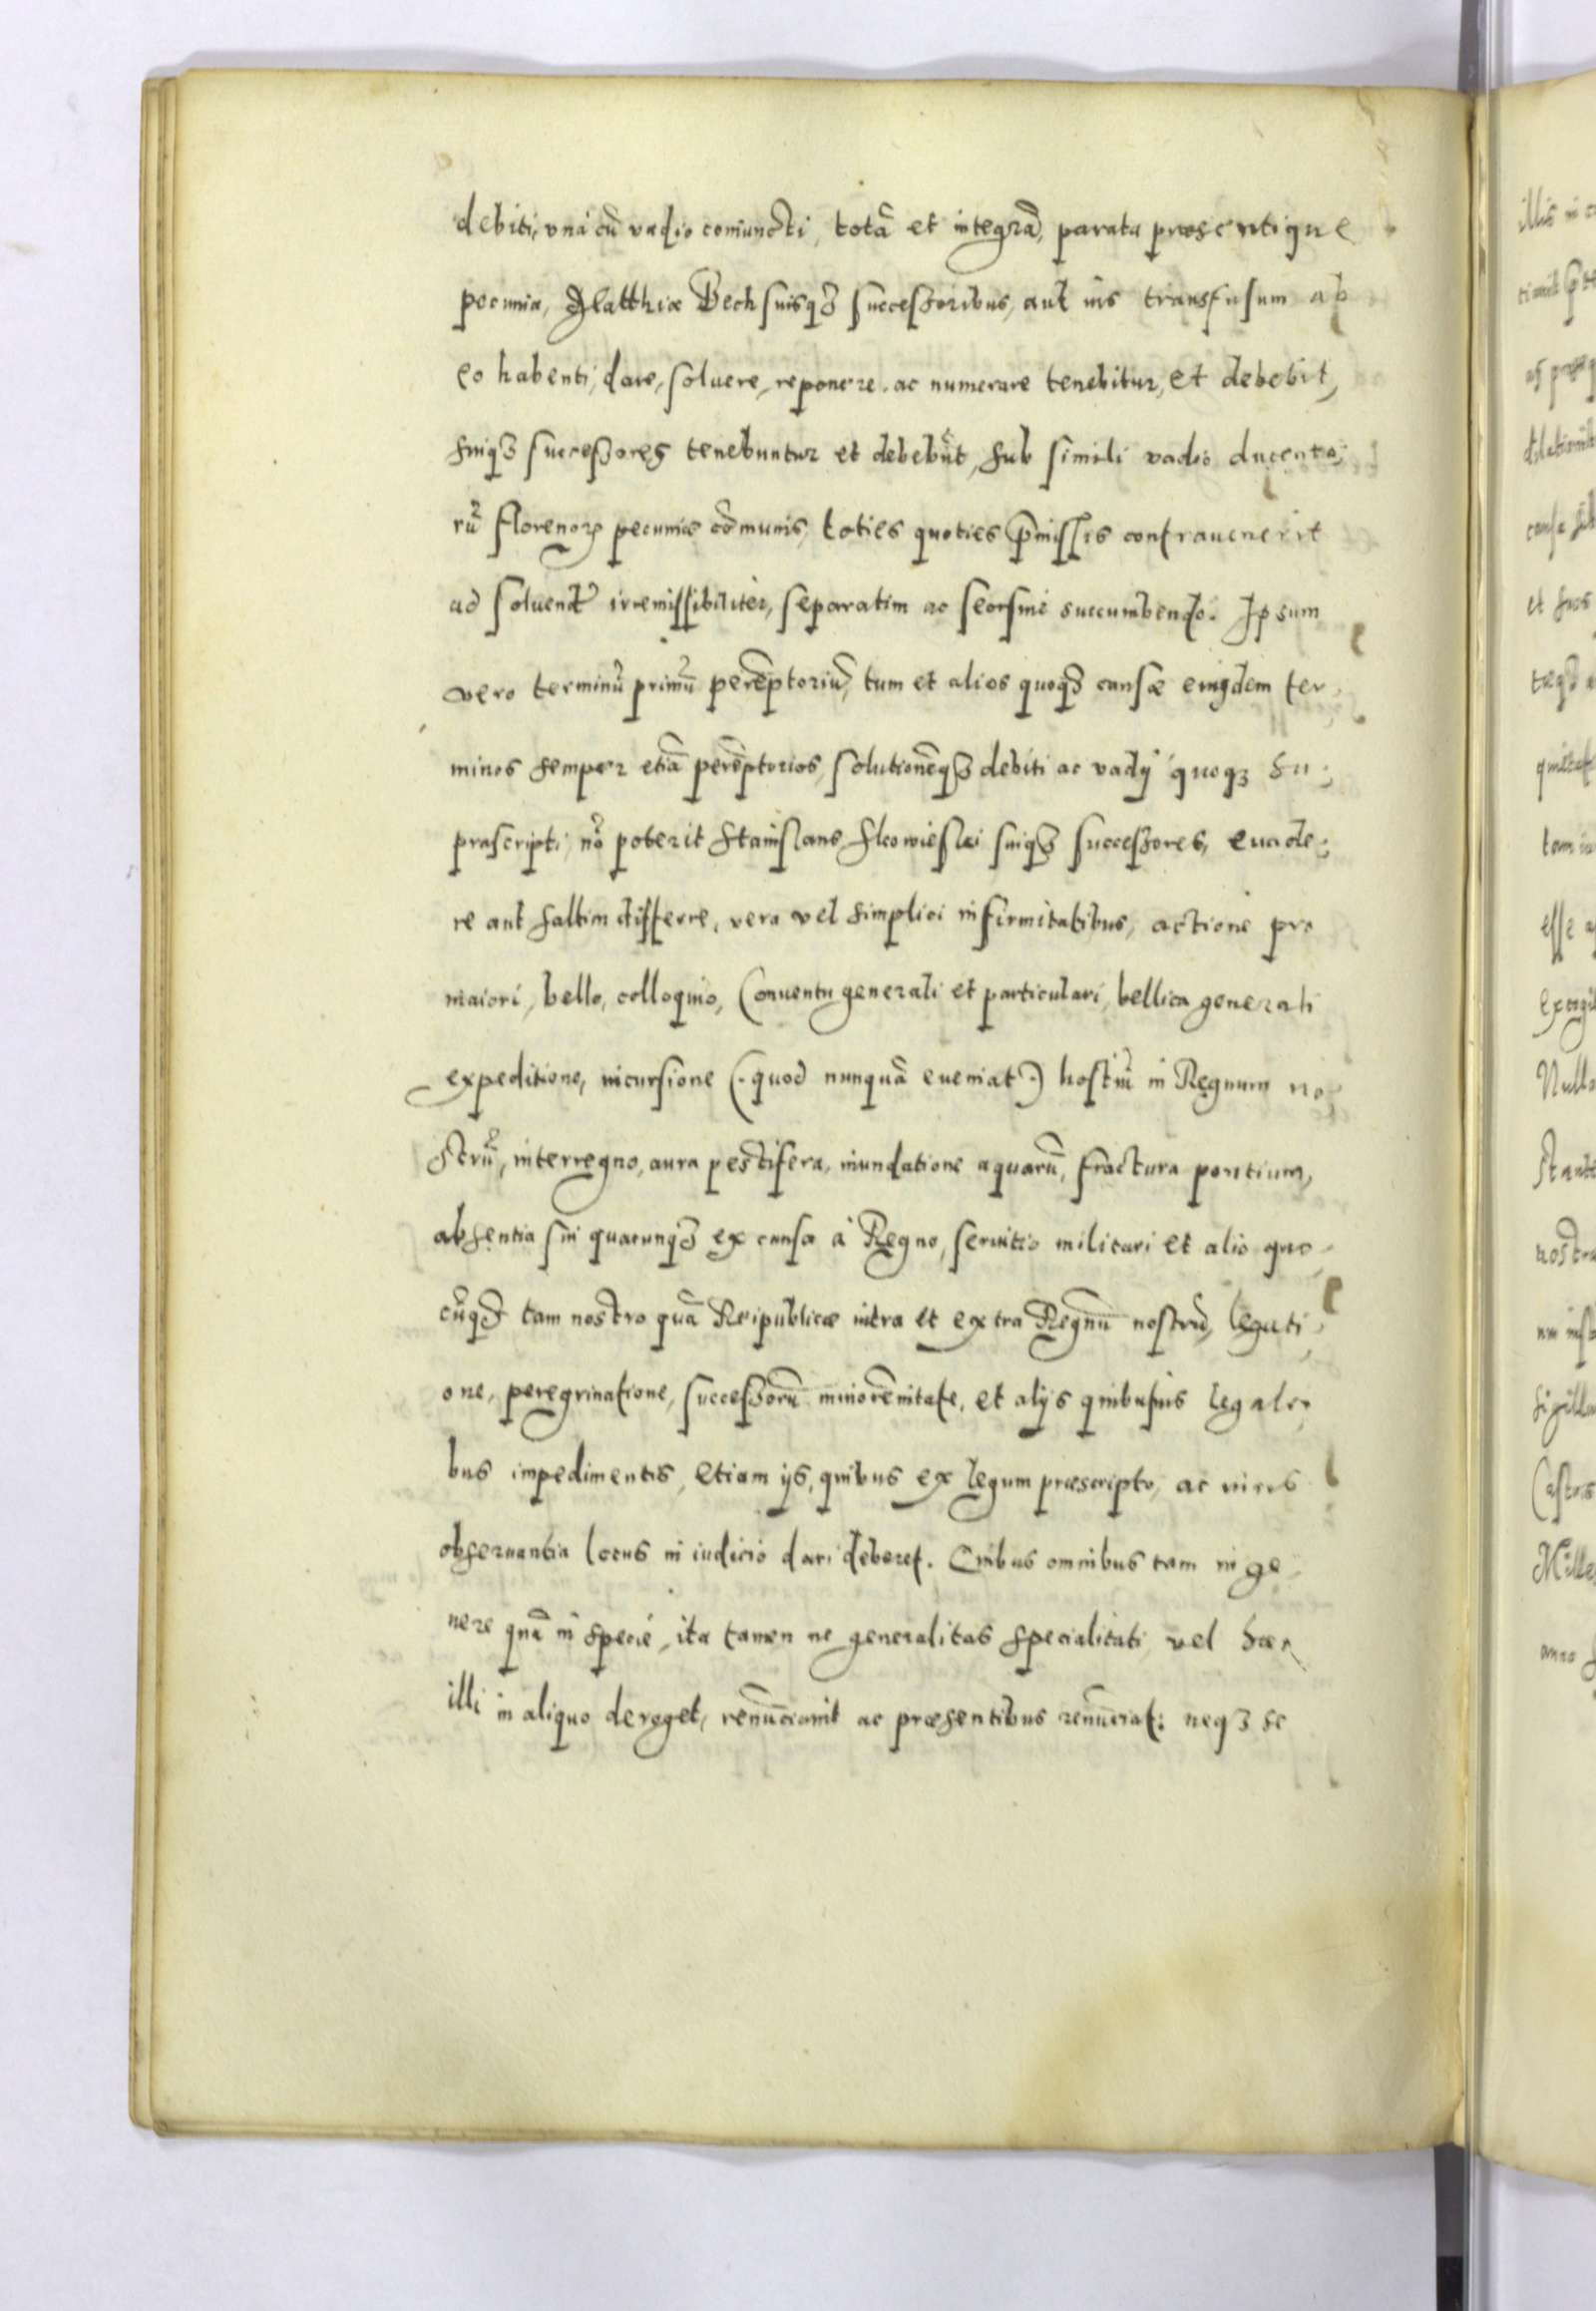 debiti, vná cū vadio coniuncti, totā et integrā, parata præsentique
pecunia, Matthiæ Bech suisq3 successoribus, aut ius transfusum ab
eo habenti, dare, soluere, reponere ac numerare tenebitur, et debebit,
suiq3 successores tenebuntur et debebūt, sub simili vadio ducento,
rū florenoꝝ pecuniæ cōmunis, toties quoties p̄missis contrauenerit
ad soluend irremissibiliter, separatim ac seorsiue succumbendo. Ipsum
vero terminū primū perēptoriū, tum et alios quoq3 causæ eiusdem ter,
minos semper etiā perēptorios, solutionēq3 debiti ac vadÿ quoq3 su,
prascripti, nō poterit Stanislaus suiq3 successores, euade,
re aut saltim differre, vera vel simplici infirmitatibus, actione pro
maiori, bello, colloquio, Conuentu generali et particulari, bellica generali
expeditione, incursione (. quod nunquā eueniat .) hostiū in Regnum no,
strū, interregno, aura pestifera, inundatione aquarū, fractura pontium,
absentia sui quacunq3 ex causa á Regno, seruitio militari et alio quo,
cūq3 tam nostro quā Reipublicæ intra et extra Regnū nostrū, legati,
one, peregrinatione, successorū minorēnitate, et alÿs quibusuis legali,
bus impedimentis, etiam ÿs, quibus ex legum præscripto, ac
obseruantia locus in iudicio dari deberet. Quibus omnibus tam in ge,
nere quā in specie, ita tamen ne generalitas specialitati, vel hæc
illi in aliquo deroget, renūciauit ac præsentibus renūciat: neq3 se
illis in
et suos
esse
Nulla